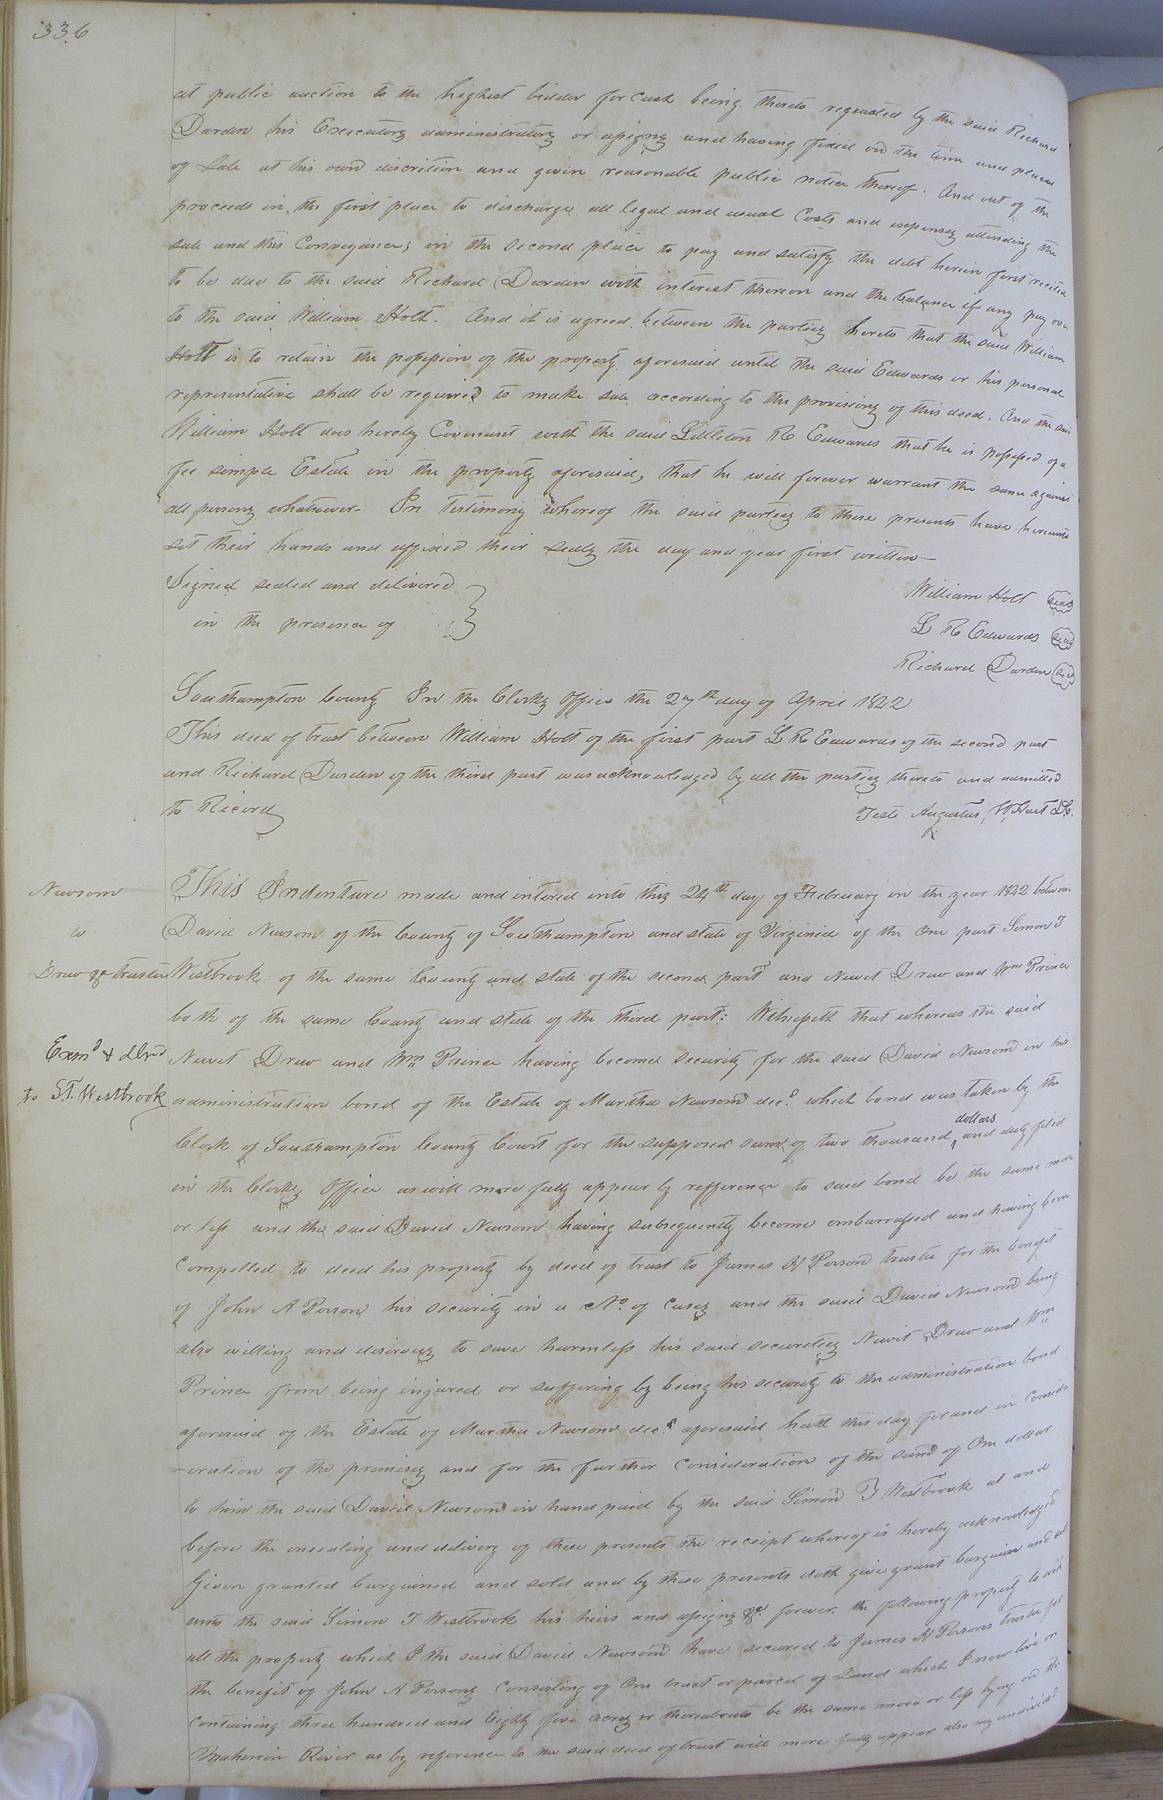 336
at public auction to the highest bidder for Cash being thereto requested by the said Richard
Darden his Executors administrators or assigns and having fixed on the time and places
of Sale at his own discretion and given reasonable public notice thereof. And out of the
proceeds in the first place to discharge all legal and usual Costs and expenses attending the
sale and this Conveyance; in the second place to pay and satisfy the debt herein first recited
to be due to the said Richard Darden with interest thereon and the balance if any pay over
to the said William Holt. And it is agreed between the parties hereto that the said William
Holt is to retain the possession of the property aforesaid until the said Edwards or his personal
representative shall be required to make sale according to the provisions of this deed. And the said
William Holt does hereby Covenant with the said Littleton R Edwards that he is possessed of a
fee simple Estate in the property aforesaid, that he will forever warrant the same against
all persons whatsoever. In Testimony whereof the said parties to these presents have hereunto
set their hands and affixed their seals the day and year first written —
Signed sealed and delivered
in the presence of
William Holt seal
L R Edwards seal
Richard Darden seal
Southampton County In the Clerks Office the 27th day of April 1822
This deed of trust between William Holt of the first part L R Edwards of the second part
and Richard Darden of the third part was acknowledged by all the parties thereto and admitted
to Record
Teste Augustus W Hart DC.
Newsom
to
Drew &c trustee
Exmd & dlvd
to S.T. Westbrook
This Indenture made and intered into this 24th day of February in the year 1822 between
David Newsom of the County of Southampton and state of Virginia of the One part Simon T
Westbrook of the same County and state of the second part and Newit Drew and Wm Prince
both of the same County and state of the third part: Witnesseth that whereas the said
Newit Drew and Wm Prince having become security for the said David Newsom in his
administration bond of the Estate of Martha Newsom decd which bond was taken by the
Clerk of Southampton County Court for the supposed sum of two thousand dollars and duly filed
in the Clerks Office as will more fully appear by refference to said bond be the same more
or less and the said David Newsom having subsequently become embarrassed and having been
Compelled to deed his property by deed of trust to James H Person trustee for the benefit
of John A Person his security in a No of cases and the said David Newsom being
also willing and desirous to save harmless his said securities Newit Drew and Wm
Prince from being injured or suffering by being his security to the administration bond
aforesaid of the Estate of Martha Newsom decd aforesaid hath this day for and in Consid-
-eration of the premises and for the further Consideration of the sum of One dollar
to him the said David Newsom in hand paid by the said Simon T Westbrook at and
before the ensealing and delivery of these presents the receipt whereof is hereby acknowledged
Given granted bargained and sold and by these presents doth give grant bargain and sel
unto the said Simon T Westbrook his heirs and assigns &c. forever the following property to wit
all the property which I the said David Newsom have secured to James H Persons trustee for
the benefit of John A Persons Consisting of One tract or parcel of Land which I now live on
containing three hundred and Eighty five acres or thereabouts be the same more or less lying on the
Meherrin River as by reference to the said deed of trust will more fully appear also my undivided